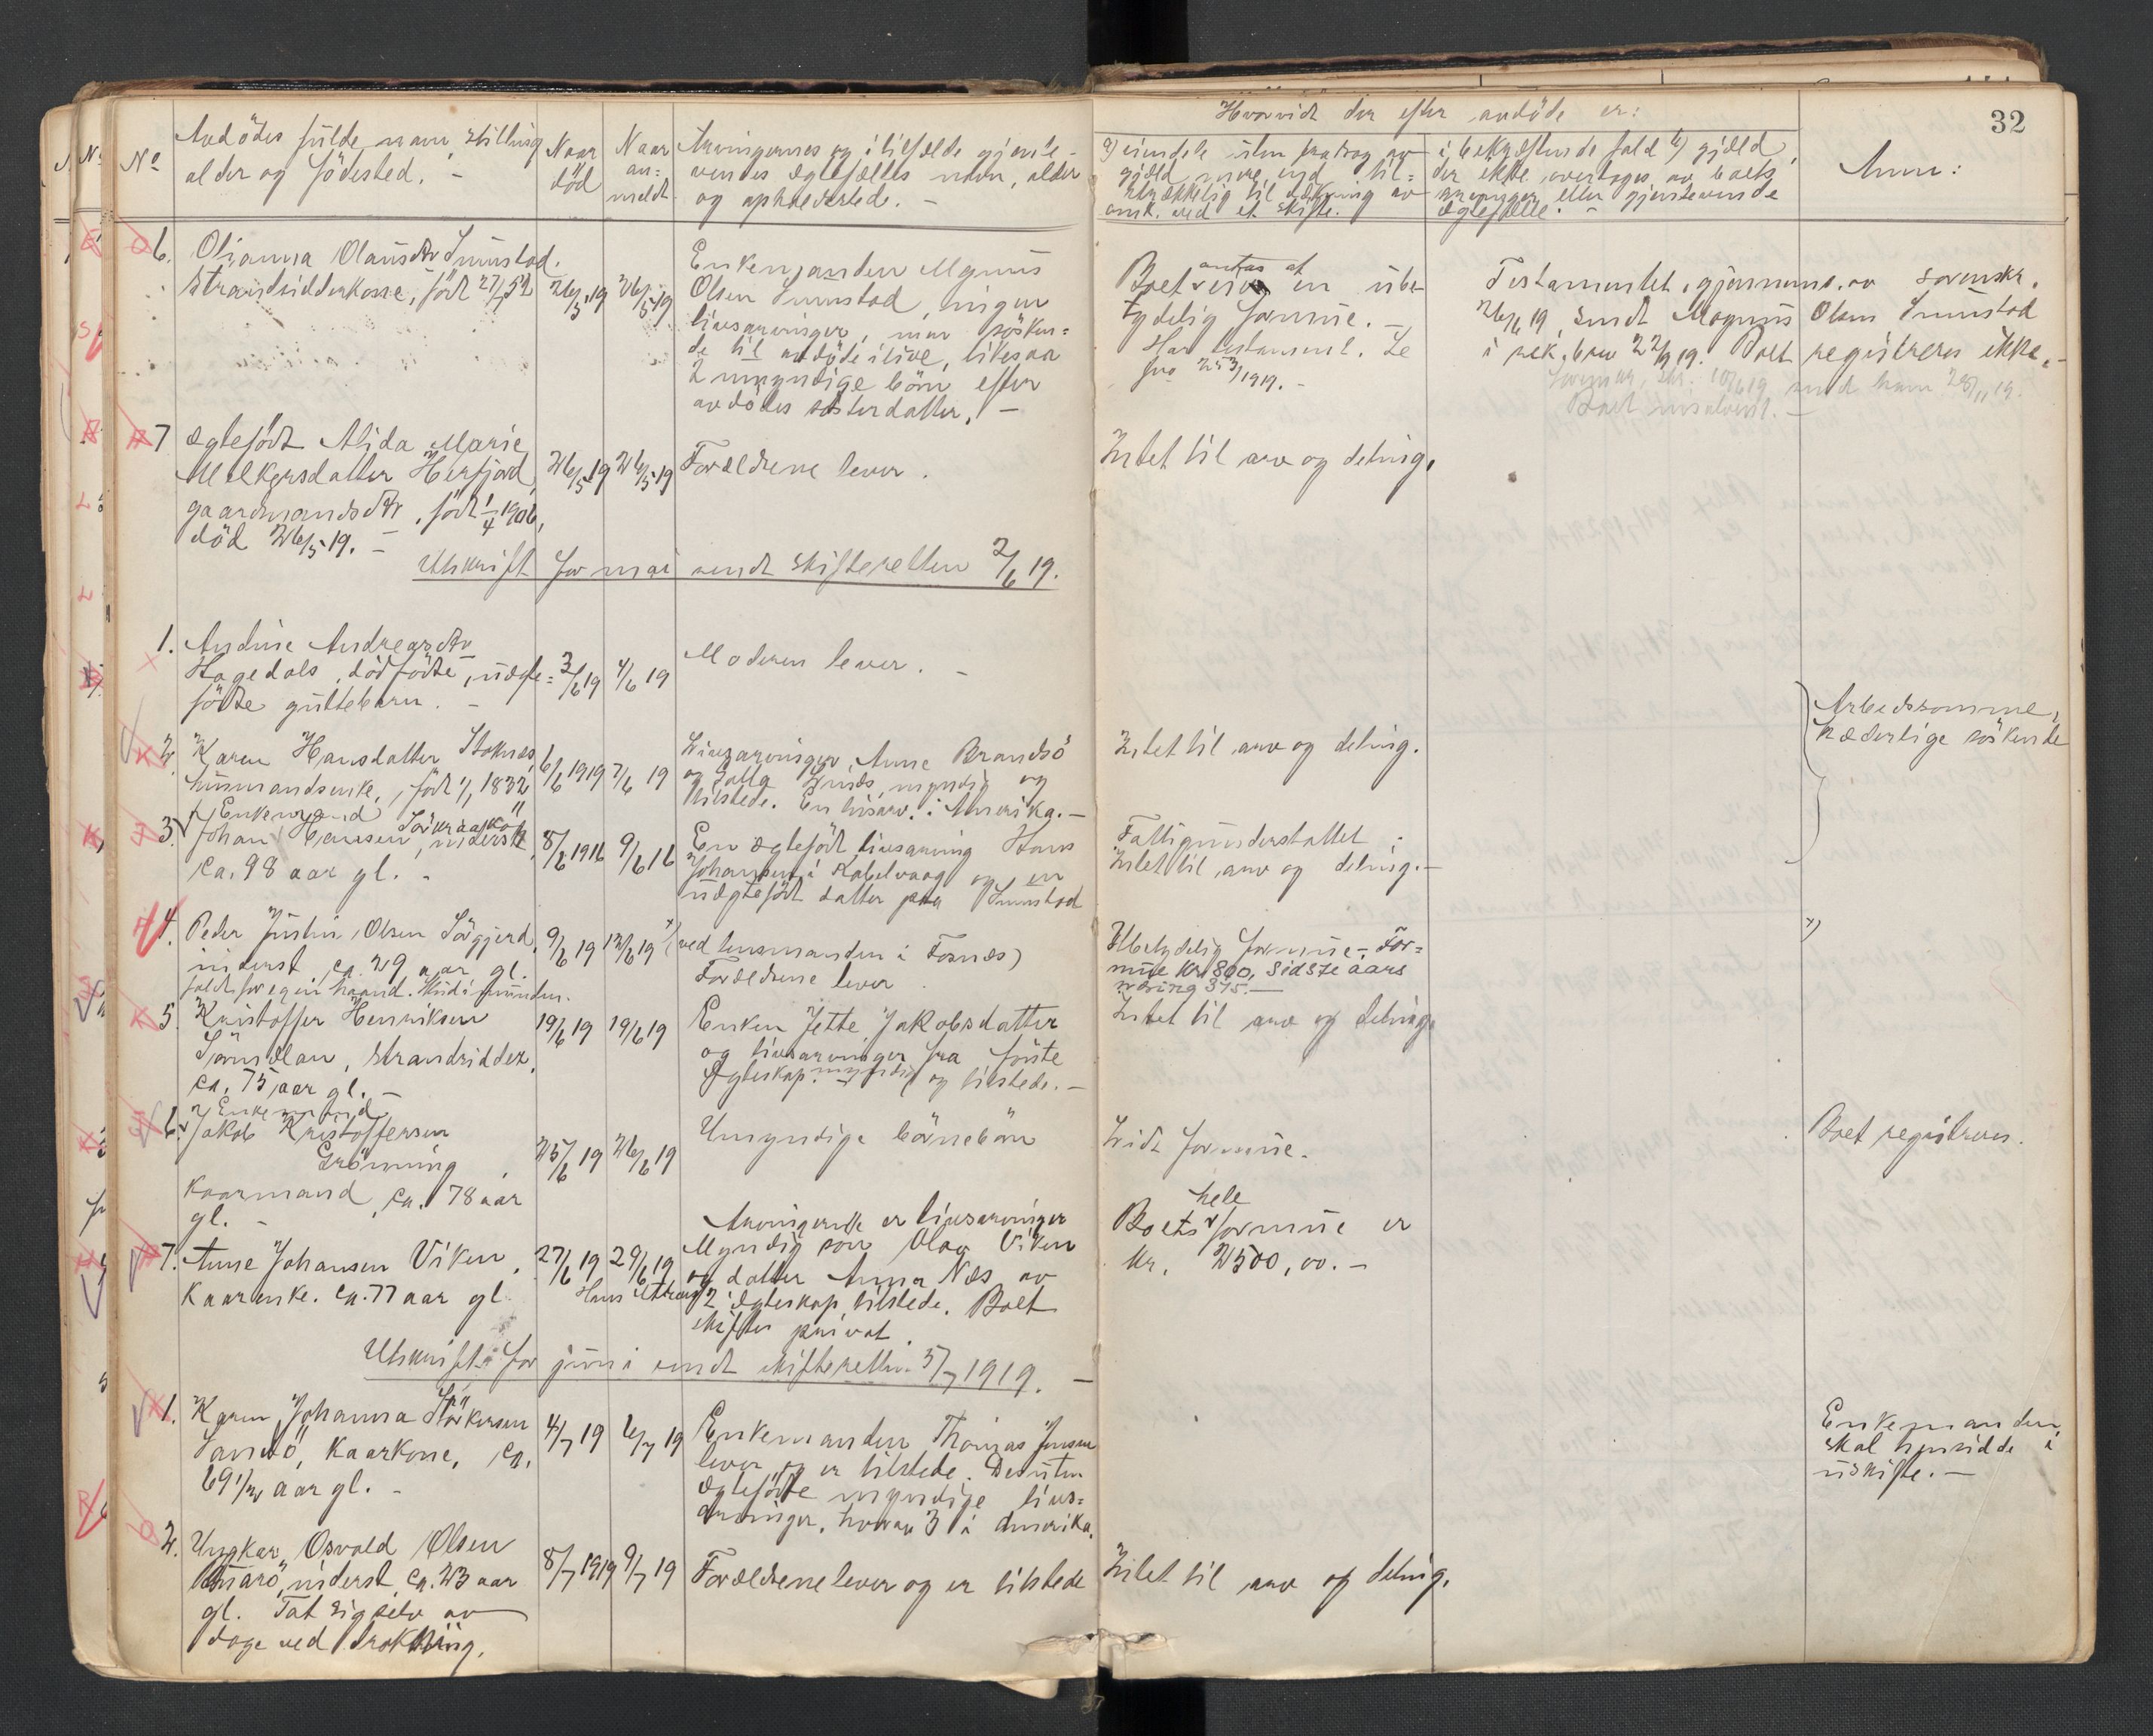 32
No
Avdödes fulde navn, stilling
alder og födested. -
Naar
död
Naar
an=
meldt.
Arvingernes og i tilfælde gjenle-
vendes ægtefælles navn, alder
og opholdssted. -
Hvorvidt der efter avdöde er:
a) eiendele uten fradrag av
gjæld mere end til=
strækkelig til dækning av
omk. ved et skifte.
i bekræftende fald b) gjæld,
der ikke overtages av boets
arvinger eller gjenlevende
ægtefælle. -
Anm:
6. Olianna Olausdtr Sunnstad.
Strandsidderkone, född 27/7 52
26/5 19
26/5 19
Enkemanden Magnus
Olsen Sunnstad, ingen
livsarvinger, men sösken=
de til avdöde ilive, likesaa
2 umyndige börn efter
avdödes sösterdatter. -
Boet antas at eie en ube-
tydelig formue. -
Har testament. Se
fra 25/3 1919. -
Testamentet, gjennem. av sorenskr.
26/6 19, sendt Magnus Olsen Sunnstad
i rek. brev 22/9 19. Boet registreres ikke. -
sendt ham 28/11 19.
Boet insolvent. -
7 Ægtefödt Alida Marie
Melkersdatter Herfjord,
gaardmandsdtr, född 1/4 1906,
död 26/5 19. -
26/5 19
26/5 19
Forældrene lever.
Intet til arv og deling.
Utskrift for mai sendt skifteretten 2/6 19.
1. Andine Andreasdtr
Hagedals, dödfödte, uægte=
födte guttebarn. -
3/6 19
4/6 19
Moderen lever. -
2. Karen Hansdatter Stoknes,
husmandsenke, född 1/1 1832
6/6 1919
7/6 19
Livsarvinger, Anne Brandsö
og Jalla Smids, myndig og
tilstede. En livsarv. i Amerika. -
Intet til arv og deling.
Arbeidsomme,
hæderlige söskende
3. Enkemand
Johan Hansen Sörkraakö, inderst,
ca. 98 aar gl. -
8/6 1916
9/6 16
En ægtefödt livsarving Hans
Johansen i Kabelvaag og en
uægtefödt datter paa Sunnstad
Fattigunderstöttet.
Intet til arv og deling. -
4. Peder Justin Olsen Sörgjerd,
inderst ca. 29 aar gl.
faldt for egen haand. Skud i munden.
9/6 19
12/6 19
x) (ved lensmanden i Fosnes)
Forældrene lever.
Ubetydelig formue. - For=
mue kr 800, sidste aars
x)
5. Kristoffer Henriksen
Sörmælan, strandsidder,
ca. 75 aar gl. -
19/6 19
19/6 19
Enken Jette Jakobsdatter
og livsarvinger fra förste
Ægteskap myndig og tilstede. -
Intet til arv og deling.
6. Enkemand
Jakob Kristoffersen
Grönning,
Kaarmand, ca. 78 aar
gl. -
25/6 19
26/6 19
Umyndige börnebörn
Lidt formue.
Boet registreres.
7. Anne Johansen Viken,
Kaarenke. ca. 77 aar gl.
27/6 19
29/6 19
Arvingerne er livsarvinger
Myndig sön Olav Viken
og datter Anna Næs av
2 ægteskap, tilstede. Boet
skiftes privat.
Boets hele formue er
kr. 2500,00. -
Utskrift for juni sendt skifteretten 5/7 1919. -
1. Karen Johanna Störkersen
Sandö, Kaarkone, ca.
69 1/2 aar gl. -
4/7 19
6/7 19
Enkemanden Thomas Jensen
lever og er tilstede. Desuten
ægtefödte myndige livs=
arvinger, hvorav 3 i Amerika.
Enkemanden
skal hensidde i
uskifte. -
2. Ungkar Osvald Olsen
inderst, ca. 23 aar
gl. Tat sig selv av
dage ved drukning.
8/7 1919
9/7 19
Forældrene lever og er tilstede
Intet til arv og deling.